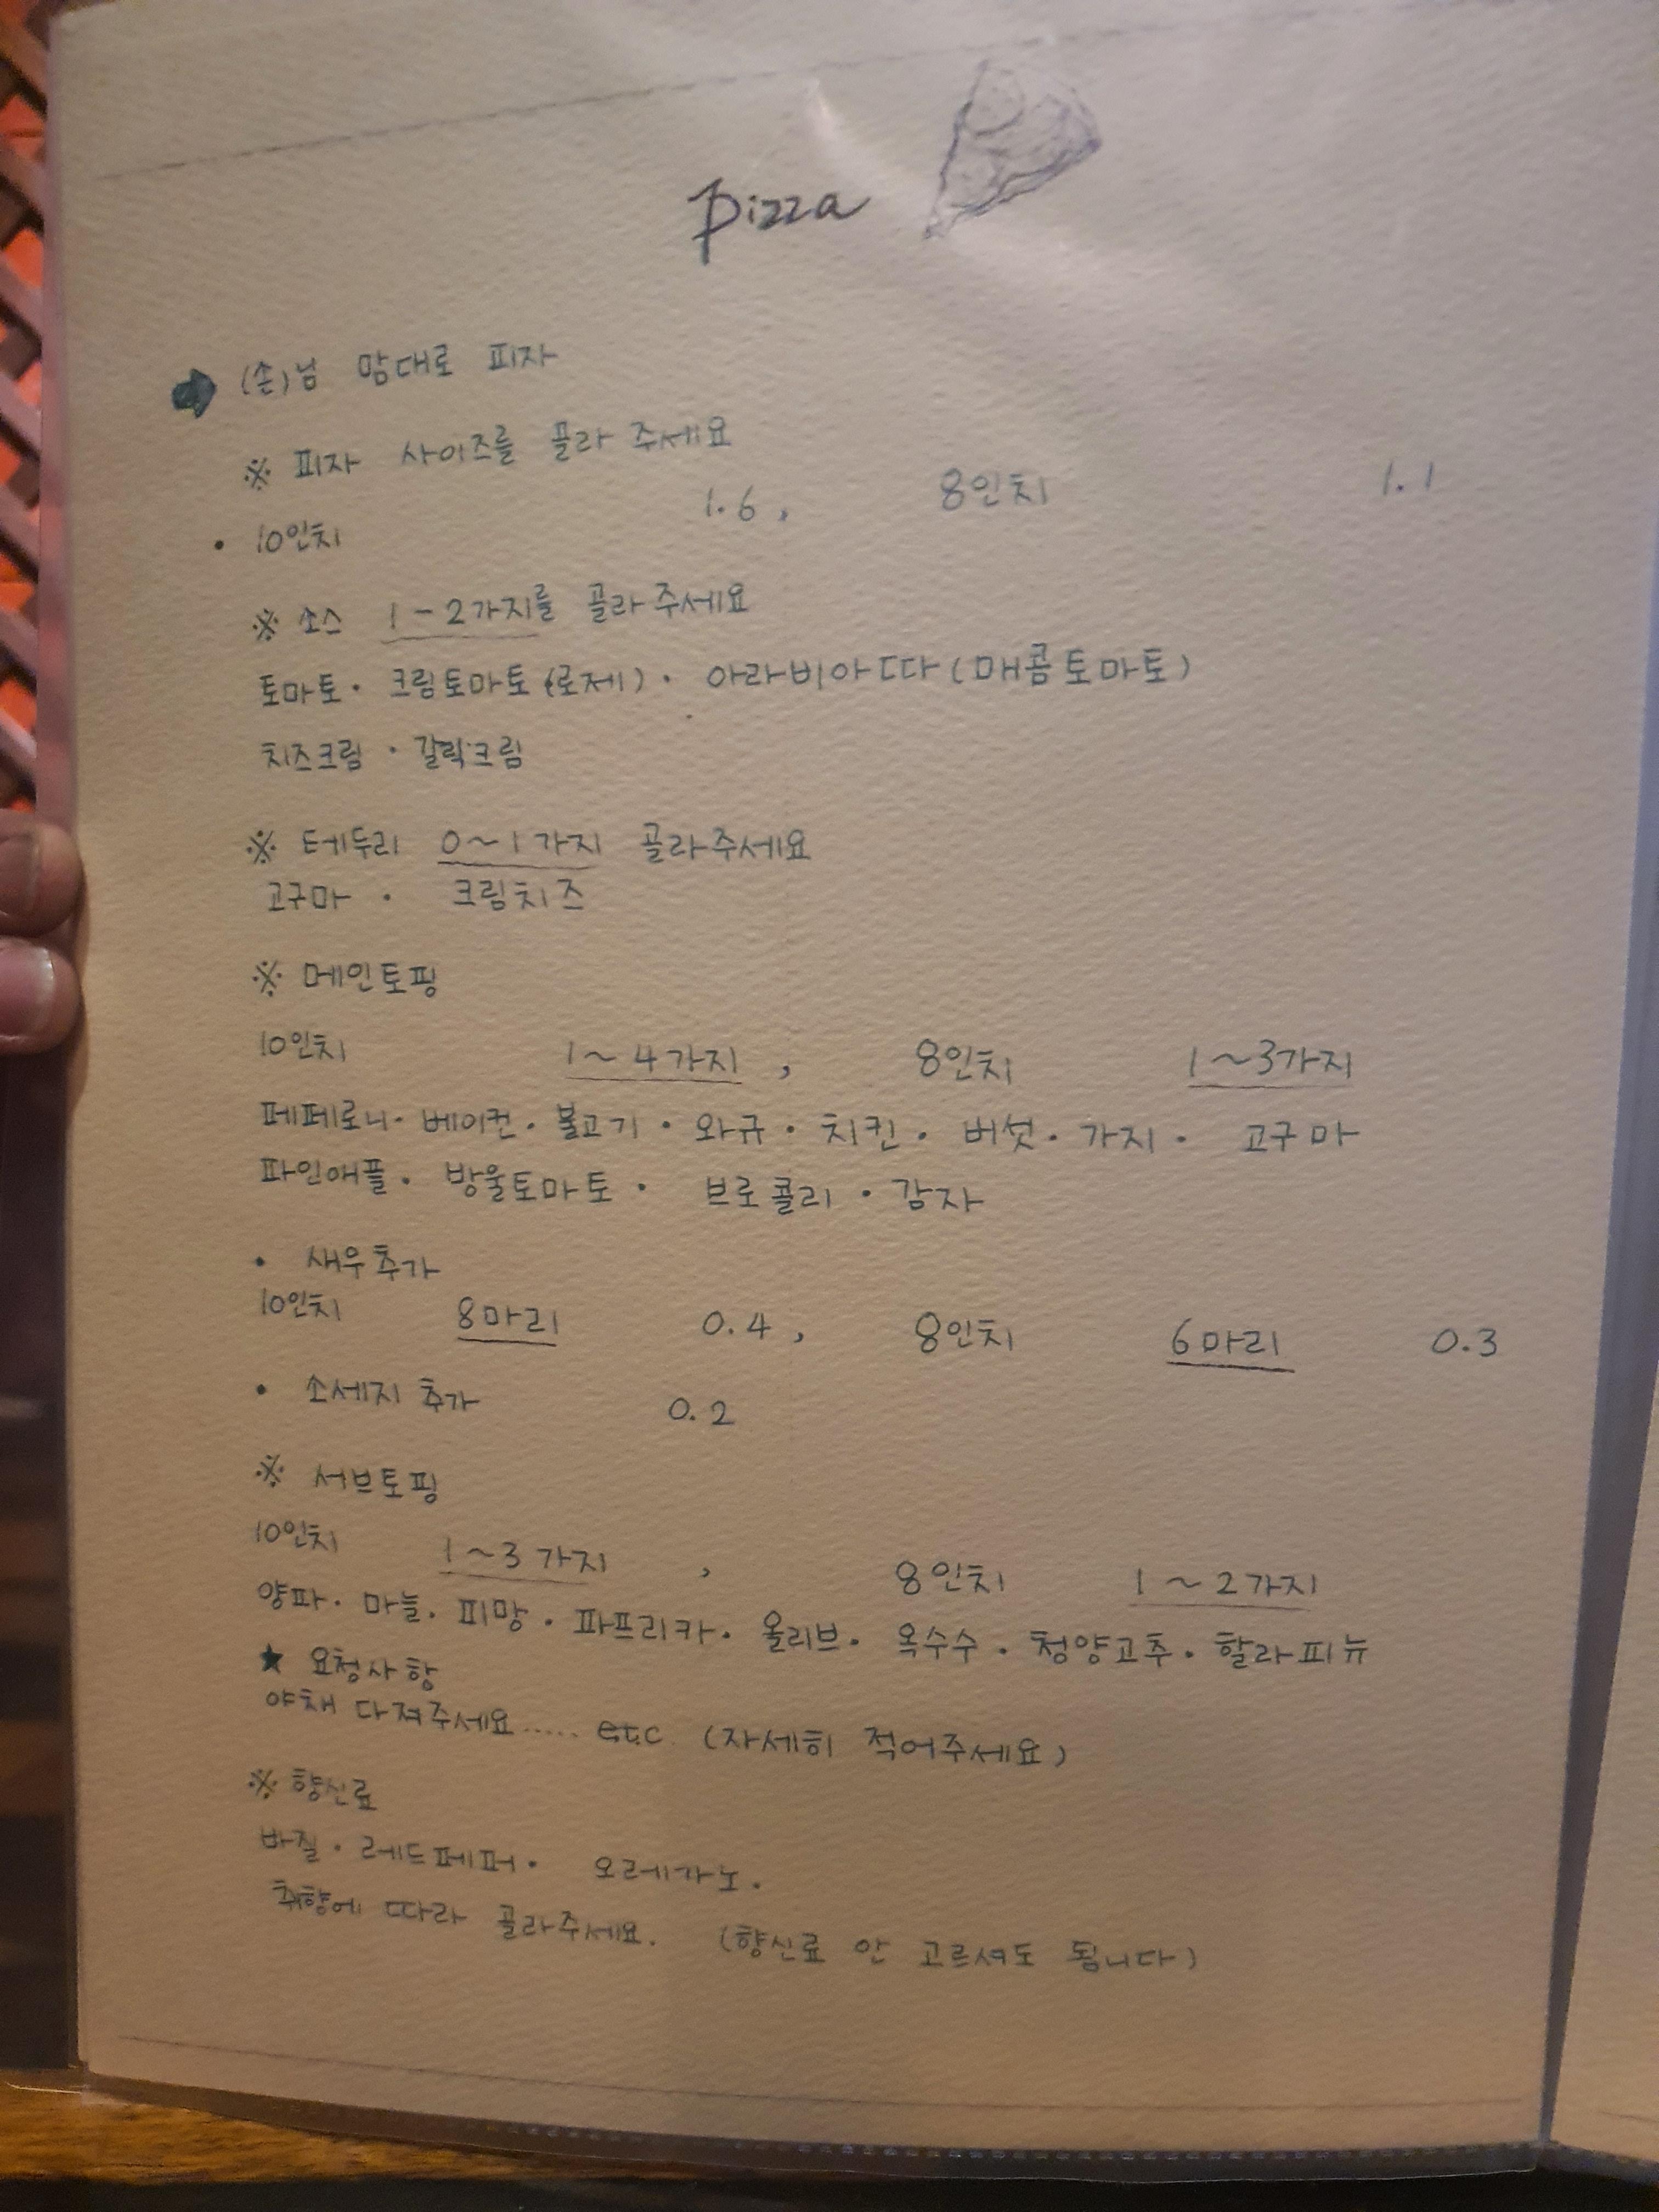 Pizza
(손)님 맘대로 피자
※ 피자 사이즈를 골라 주세요
• 10인치 1.6, 8인치 1.1
※ 소스 1-2가지를 골라주세요
토마토 · 크림토마토(로제) · 아라비아따(매콤토마토)
치즈크림 · 갈릭크림
※ 테두리 0~1가지 골라주세요
고구마 · 크림치즈
※ 메인토핑
10인치 1~4가지, 8인치 1~3가지
페페로니 · 베이컨 · 불고기 · 와규 · 치킨 · 버섯 · 가지 · 고구마
파인애플 · 방울토마토 · 브로콜리 · 감자
• 새우추가
10인치 8마리 0.4, 8인치 6마리 0.3
• 소세지 추가 0.2
※ 서브토핑
10인치 1~3가지, 8인치 1~2가지
양파 · 마늘 · 피망 · 파프리카 · 올리브 · 옥수수 · 청양고추 · 할라피뉴
★ 요청사항
야채 다져주세요..... etc (자세히 적어주세요)
※ 향신료
바질 · 레드페퍼 · 오레가노.
취향에 따라 골라주세요. (향신료 안 고르셔도 됩니다)